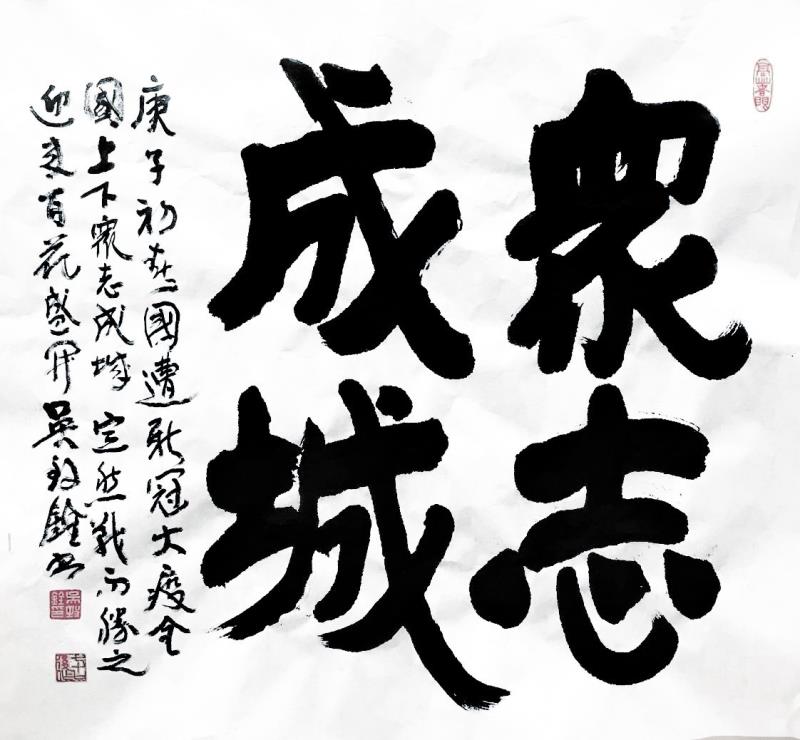 眾志
成城
庚子初春國遭新冠大疫全
國上下眾志成城定然戰而勝之
迎來百花盛開吳致銓书